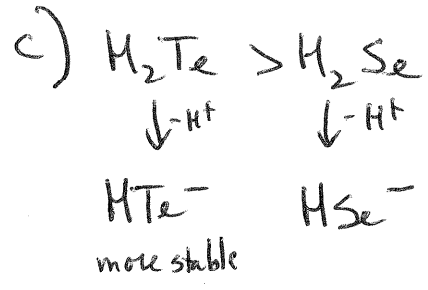 c) H₂Te > H₂Se
↓-H⁺ ↓-H⁺
HTe⁻ HSe⁻
more stable